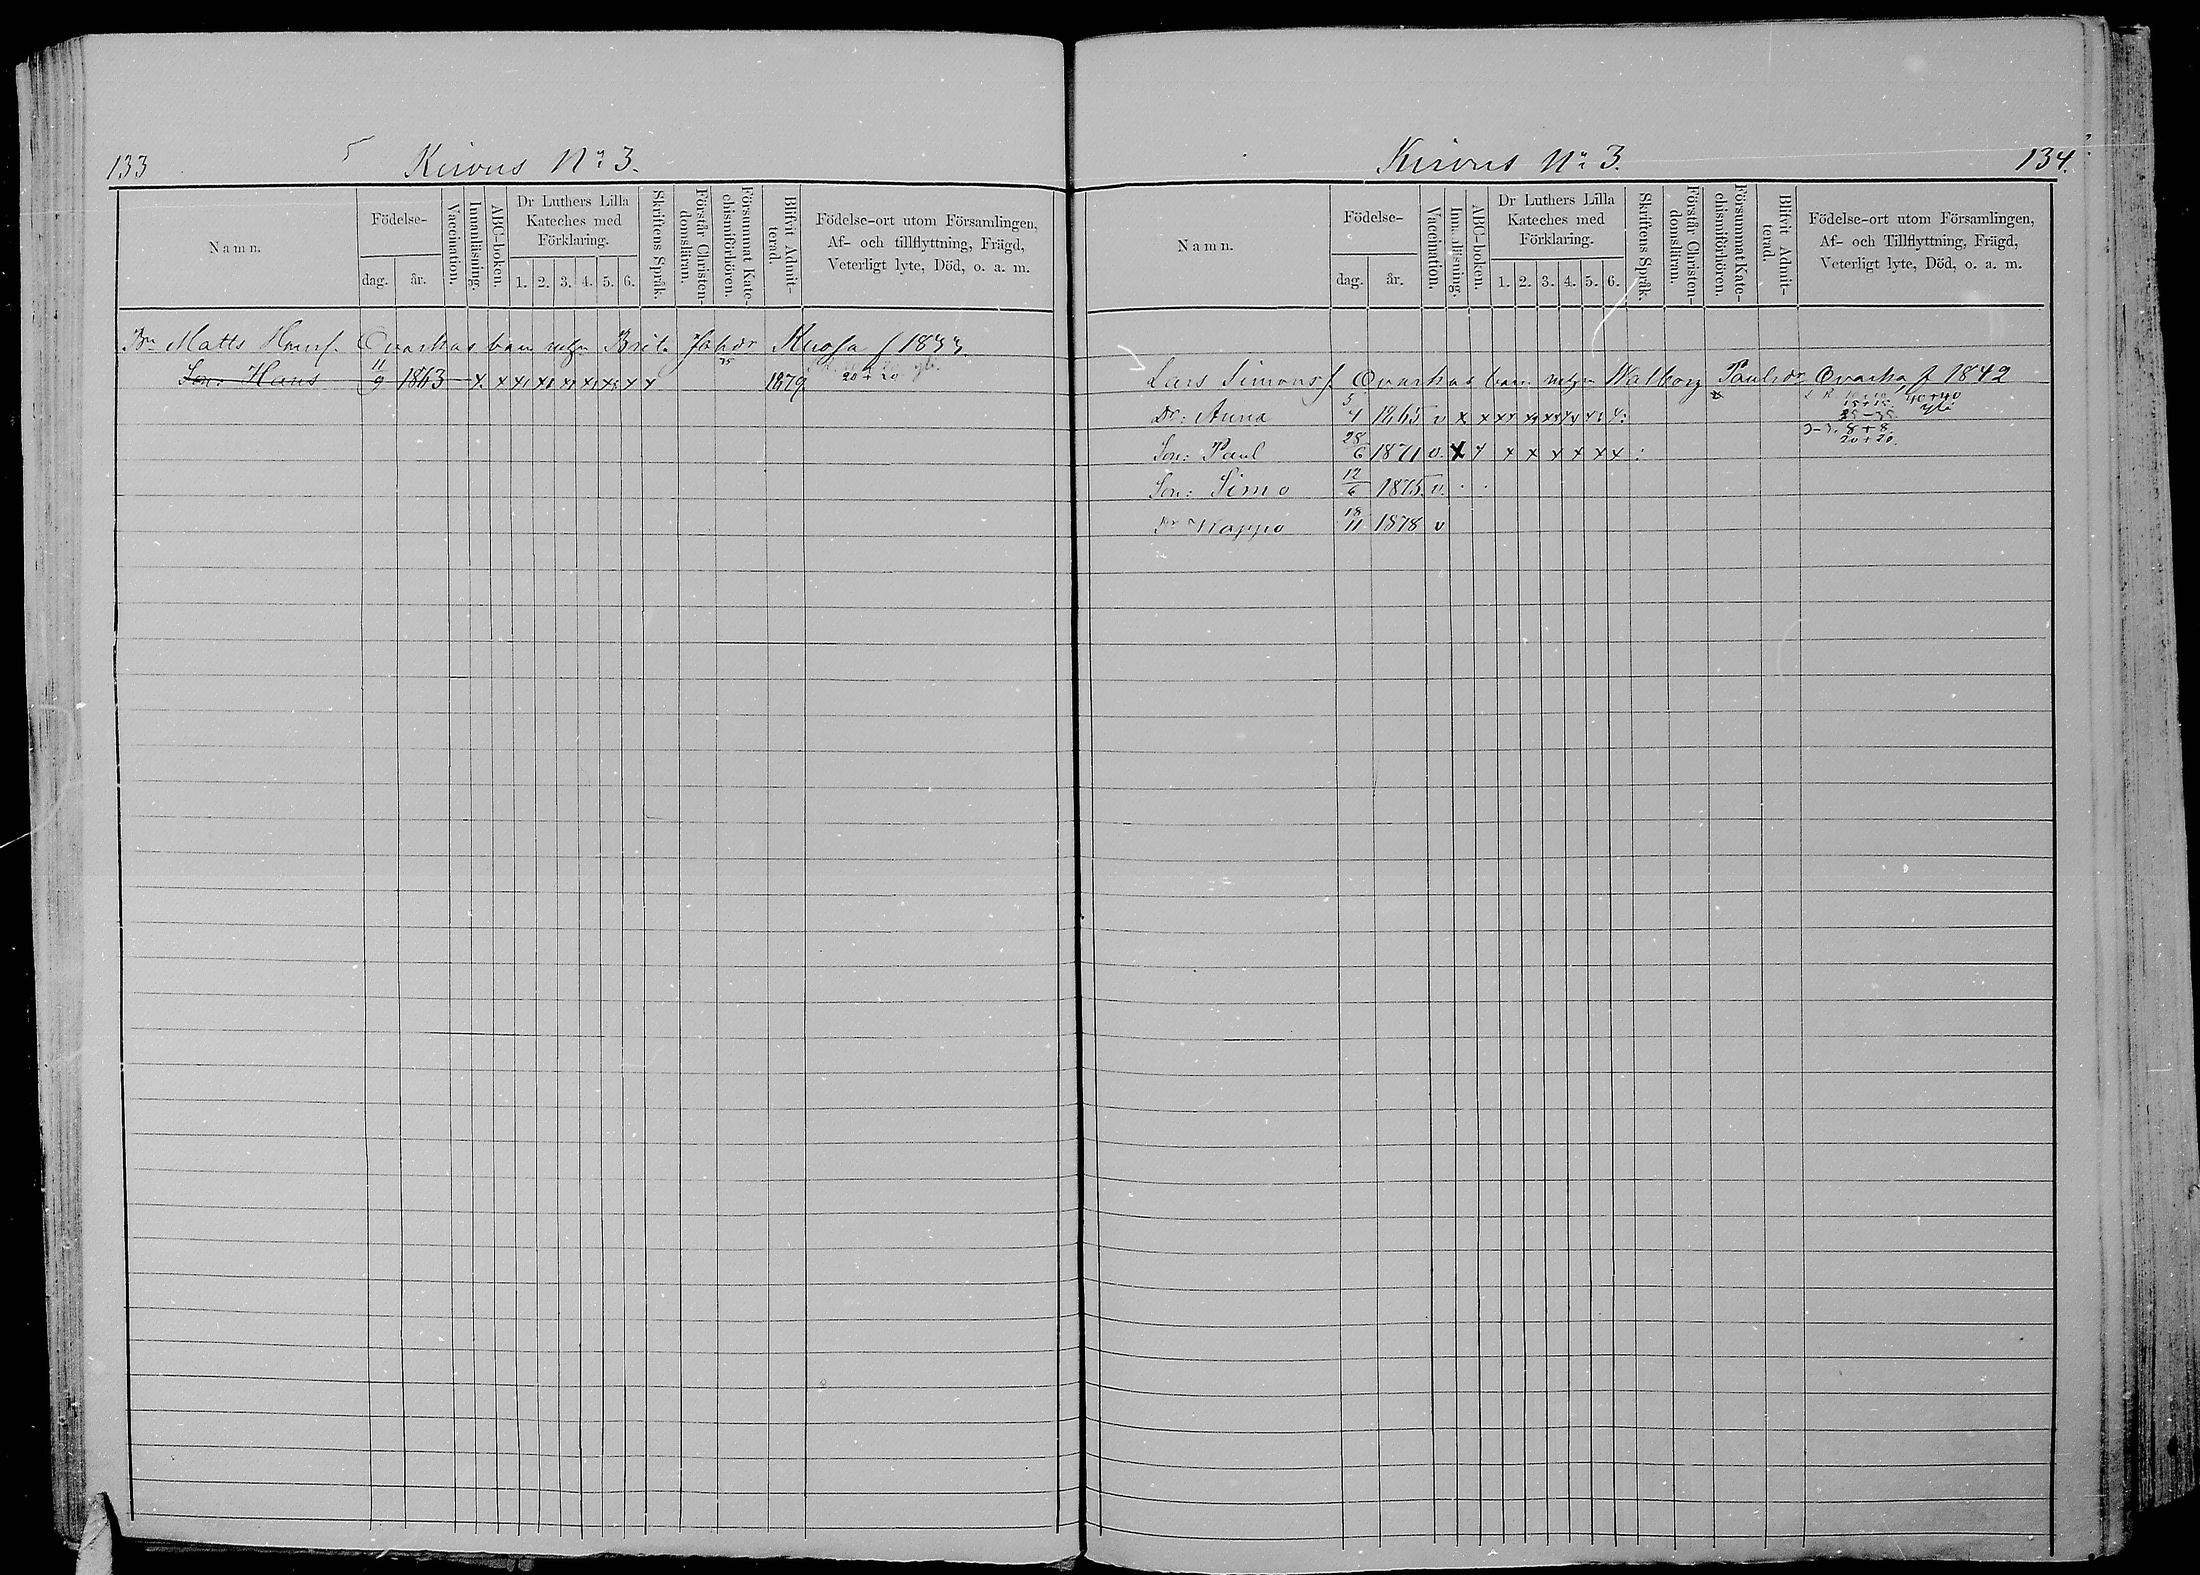 133
Kirvus No 3.
Namn.
Födelse-
dag. år.
Vaccination.
Innanläsning.
ABC-boken.
Dr Luthers Lilla Kateches med Förklaring.
1. 2. 3. 4. 5. 6.
Skriftens Språk.
Förstår Christen-domsläran.
Försummat Kate-chismiförhören.
Blifvit Admit-terad.
Födelse-ort utom Församlingen,
Af- och tillflyttning, Frägd,
Veterligt lyte, Död, o. a. m.
Matts Hansf. Ovaskas barn m Brit. Johdr Kuosa f 1833
Son: Hans 11/9 1863 x x x x x x x x x x 1879 20+20
Kirvus No 3.
134.
Namn.
Födelse-
dag. år.
Vaccination.
Innanläsning.
ABC-boken.
Dr Luthers Lilla Kateches med Förklaring.
1. 2. 3. 4. 5. 6.
Skriftens Språk.
Förstår Christen-domsläran.
Försummat Kate-chismiförhören.
Blifvit Admit-terad.
Födelse-ort utom Församlingen,
Af- och Tillflyttning, Frägd,
Veterligt lyte, Död, o. a. m.
Lars Simonsf Ovaskas barn m Walborg Paulsdr Ovaska f 1842
Dr: Anna 5/4 1865 v x x x x x x x 40+40
Son: Paul 28/6 1871 v. x x x x x x x x 8+8. 20+20.
Son: Simo 12/6 1875 v.
Dr Wappo 18/11 1878 v